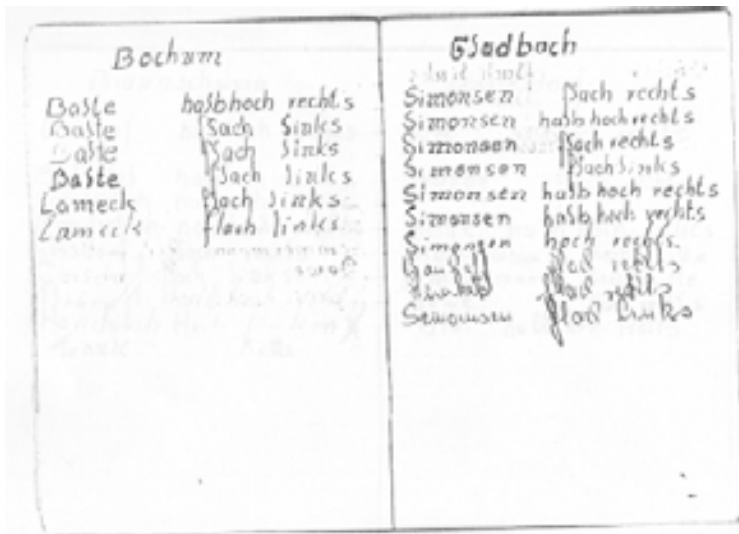 Bochum
Balte halbhoch rechts
Balte flach links
Balte flach links
Balte flach links
Lameck flach links
Lameck flach links
Gladbach
Simonsen flach rechts
Simonsen halbhoch rechts
Simonsen flach rechts
Simonsen flach links
Simonsen halbhoch rechts
Simonsen halbhoch rechts
Simonsen hoch rechts
flach rechts
flach rechts
Simonsen flach links